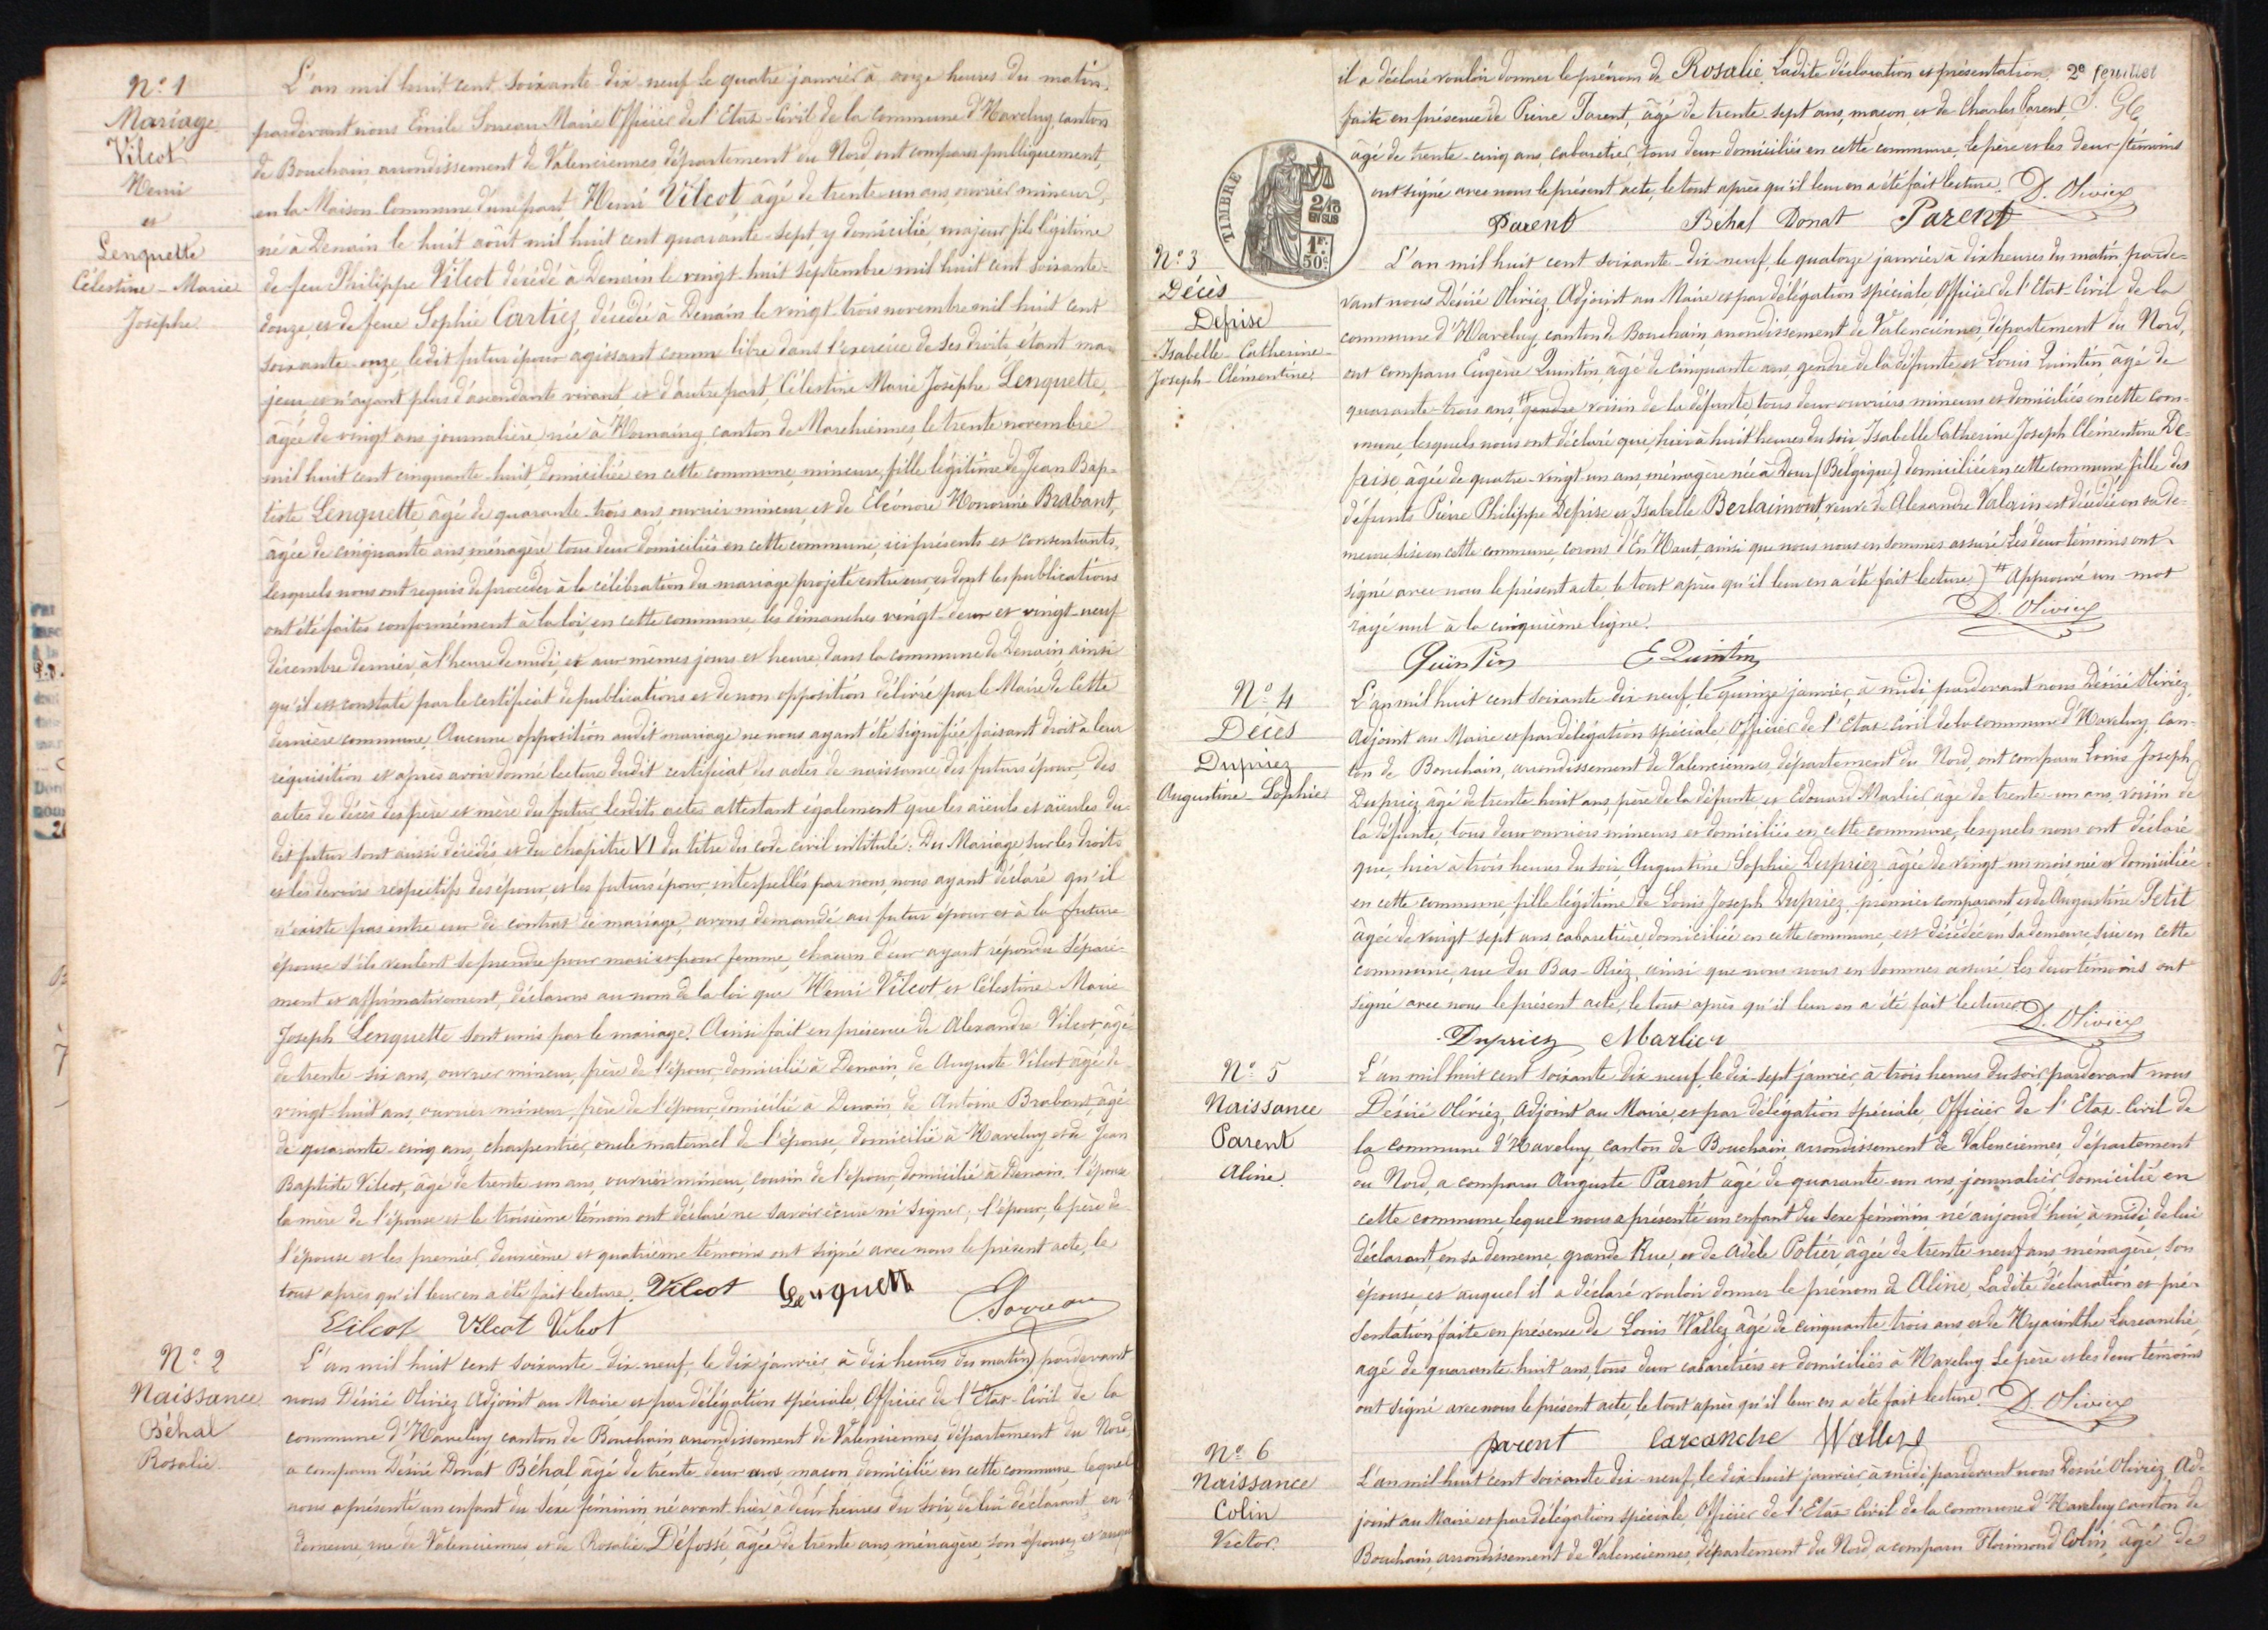 N° 1
Mariage
Vilcot
Henri
et
Lenquette
Célestine - Marie
Josèphe
L'an mil huit cent soixante-dix-neuf le quatre janvier à onze heures du matin,
pardevant nous Émile Soreau Maire Officier de l'Etat-Civil de la commune d'Haveluy, canton
de Bouchain, arrondissement de Valenciennes, département du Nord, ont comparu publiquement,
en la Maison Commune d'une part Henri Vilcot, âgé de trente-un ans, ouvrier mineur,
né à Denain le huit août mil huit cent quarante-sept, y domicilié, majeur, fils légitime
de feu Philippe Vilcot décédé à Denain le vingt-huit septembre mil huit cent soixante-
douze, et de feue Sophie Cartiez, décédée à Denain le vingt-trois novembre mil huit cent
soixante-onze, ledit futur époux agissant comme libre dans l'exercice de ses droits étant ma-
jeur et n'ayant plus d'ascendants vivant, et d'autre part, Célestine Marie Josèphe Lenquette,
âgée de vingt ans, journalière, née à Hornaing, canton de Marchiennes, le trente novembre
mil huit cent cinquante-huit, domiciliée en cette commune, mineure, fille légitime de Jean Bap-
tiste Lenquette âgé de quarante-trois ans, ouvrier mineur, et de Éléonore Honorine Brabant,
âgée de cinquante ans, ménagère, tous deux domiciliés en cette commune, ici présents et consentants,
Lesquels nous ont requis de procéder à la célébration du mariage projeté entre eux, et dont les publications
ont été faites conformément à la loi, en cette commune, les dimanches vingt-deux et vingt-neuf
décembre dernier, à l'heure de midi, et aux mêmes jours et heure, dans la commune de Denain, ainsi
qu'il est constaté par le certificat de publications et de non opposition délivré par le Maire de cette
dernière commune. Aucune opposition audit mariage ne nous ayant été signifiée, faisant droit à leur
réquisition et après avoir donné lecture dudit certificat des actes de naissance des futurs époux, des
actes de décès des père et mère du futur, lesdits actes attestant également que les aïeuls et aïeules du-
dit futur sont aussi décédés, et du chapitre VI du titre du code civil intitulé: Du Mariage, sur les droits
et les devoirs respectifs des époux, et les futurs époux interpellés par nous, nous ayant déclaré qu'il
n'existe pas entre eux de contrat de mariage, avons demandé au futur époux et à la future
épouse s'ils veulent se prendre pour mari et pour femme, chacun d'eux ayant répondu séparé-
ment et affirmativement, déclarons au nom de la loi que Henri Vilcot et Célestine Marie
Joseph Lenquette sont unis par le mariage. Ainsi fait en présence de Alexandre Vilcot, âgé
de trente-six ans, ouvrier mineur, frère de l'époux, domicilié à Denain, de Auguste Vilcot âgé de
vingt-huit ans, ouvrier mineur, frère de l'époux, domicilié à Denain, de Antoine Brabant, âgé
de quarante-cinq ans, charpentier, oncle maternel de l'épouse, domicilié à Haveluy, et de Jean
Baptiste Vilcot, âgé de trente-un ans, ouvrier mineur, cousin de l'époux, domicilié à Denain. L'épouse
la mère de l'épouse et le troisième témoin ont déclaré ne savoir écrire ni signer, l'époux, le père de
l'épouse et les premier, deuxième et quatrième témoins ont signé avec nous le présent acte, le
tout après qu'il leur en a été fait lecture. Vilcot Lenquette
Vilcot Vilcot Vilcot
N° 2
Naissance
Béhal
Rosalie
L'an mil huit cent soixante-dix-neuf, le dix janvier à dix heures du matin, pardevant
nous Désiré Oliviez Adjoint au Maire et par délégation spéciale, Officier de l'Etat-Civil de la
commune d'Haveluy canton de Bouchain arrondissement de Valenciennes, département du Nord,
a comparu Désiré Donat Béhal âgé de trente-deux ans maçon domicilié en cette commune, lequel
nous a présenté un enfant du sexe féminin, né avant-hier à deux heures du soir, de lui déclarant, en
demeure, rue de Valenciennes, et de Rosalie Défossé, âgée de trente ans, ménagère, son épouse, et auquel
2e feuillet
il a déclaré vouloir donner le prénom de Rosalie. Ladite déclaration et présentation
faite en présence de Pierre Parent, âgé de trente-sept ans, maçon, et de Charles Parent,
âgé de trente-cinq ans, cabaretier, tous deux domiciliés en cette commune. Le père et les deux témoins
ont signé avec nous le présent acte, le tout après qu'il leur en a été fait lecture. D. Oliviez
Parent Béhal Donat Parent
TIMBRE
2/10
EN SUS
1F.
50c.
N° 3
Décès
Defrise
Isabelle - Catherine -
Joseph - Clémentine
L'an mil huit cent soixante-dix-neuf, le quatorze janvier à dix heures du matin, parde-
vant nous Désiré Oliviez, Adjoint au Maire et par délégation spéciale Officier de l'Etat-Civil de la
commune d'Haveluy, canton de Bouchain, arrondissement de Valenciennes, département du Nord,
ont comparu Eugène Quintin, âgé de cinquante ans, gendre de la défunte, et Louis Quintin, âgé de
quarante-trois ans, gendre voisin de la défunte, tous deux ouvriers mineurs et domiciliés en cette com-
mune, lesquels nous ont déclaré que, hier à huit heures du soir Isabelle Catherine Joseph Clémentine De-
frise, âgée de quatre-vingt-un ans, ménagère née à Dour (Belgique), domiciliée en cette commune, fille des
défunts Pierre Philippe Defrise et Isabelle Berlaimont, veuve de Alexandre Valerin est décédée en sa de-
meure sise en cette commune, corons d'En Haut ainsi que nous nous en sommes assuré. Les deux témoins ont
signé avec nous le présent acte, le tout après qu'il leur en a été fait lecture) Approuvé un mot
rayé nul à la cinquième ligne. D. Oliviez
Quintin E Quintin
N° 4
Décès
Dupriez
Augustine - Sophie
L'an mil huit cent soixante-dix-neuf, le quinze janvier, à midi, pardevant nous Désiré Oliviez,
Adjoint au Maire et par délégation spéciale, Officier de l'Etat-Civil de la commune d'Haveluy, can-
ton de Bouchain, arrondissement de Valenciennes, département du Nord, ont comparu Louis Joseph
Dupriez, âgé de trente-huit ans, père de la défunte et Edouard Marlier, âgé de trente-un ans, voisin de
la défunte, tous deux ouvriers mineurs et domiciliés en cette commune, lesquels nous ont déclaré
que, hier à trois heures du soir, Augustine Sophie Dupriez, âgée de vingt-un mois, née et domiciliée
en cette commune, fille légitime de Louis Joseph Dupriez, premier comparant, et de Augustine Petit
âgée de vingt-sept ans, cabaretière, domiciliée en cette commune, est décédée en sa demeure, sise en cette
commune, rue du Bas-Riez, ainsi que nous nous en sommes assuré. Les deux témoins ont
signé avec nous le présent acte, le tout après qu'il leur en a été fait lecture. D. Oliviez
Dupriez Marlier
N° 5
Naissance
Parent
Aline
L'an mil huit cent soixante-dix-neuf, le dix-sept janvier, à trois heures du soir, pardevant nous
Désiré Oliviez, Adjoint au Maire, et par délégation spéciale, Officier de l'Etat-Civil de
la commune d'Haveluy, canton de Bouchain, arrondissement de Valenciennes, département
du Nord, a comparu Auguste Parent âgé de quarante-un ans, journalier, domicilié en
cette commune, lequel nous a présenté un enfant du sexe féminin, né aujourd'hui, à midi, de lui
déclarant, en sa demeure, grande Rue, et de Adèle Potier, âgée de trente-neuf ans, ménagère, son
épouse, et auquel il a déclaré vouloir donner le prénom de Aline. Ladite déclaration et pré-
sentation faite en présence de Louis Wallez, âgé de cinquante-trois ans et de Hyacinthe Larcanché,
âgé de quarante-huit ans, tous deux cabaretiers et domiciliés à Haveluy. Le père et les deux témoins
ont signé avec nous le présent acte, le tout après qu'il leur en a été fait lecture. D. Oliviez
parent Larcanche Wallez
N° 6
Naissance
Colin
Victor
L'an mil huit cent soixante-dix-neuf, le dix-huit janvier, à midi, pardevant nous Désiré Oliviez, Ad-
joint au Maire et par délégation spéciale, Officier de l'Etat-Civil de la commune d'Haveluy canton de
Bouchain, arrondissement de Valenciennes, département du Nord, a comparu Florimond Colin, âgé de